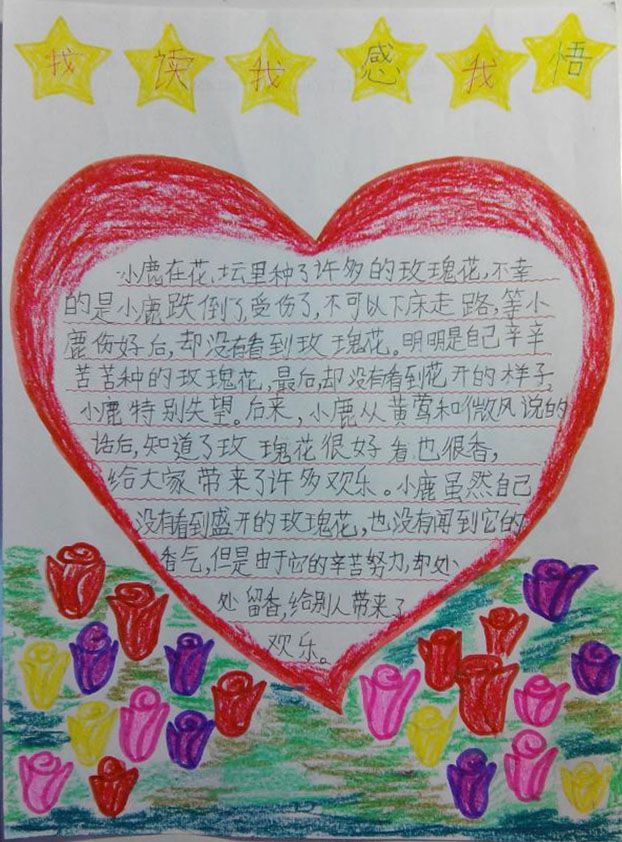 我读我感我悟
小鹿在花坛里种了许多的玫瑰花,不幸
的是小鹿跌倒了,受伤了,不可以下床走路,等小
鹿伤好后,却没有看到玫瑰花。明明是自己辛辛
苦苦种的玫瑰花,最后,却没有看到花开的样子,
小鹿特别失望。后来,小鹿从黄莺和微风说的
话后,知道了玫瑰花很好看也很香,
给大家带来了许多欢乐。小鹿虽然自己
没有看到盛开的玫瑰花,也没有闻到它的
香气,但是由于它的辛苦努力,却处
处留香,给别人带来了
欢乐。